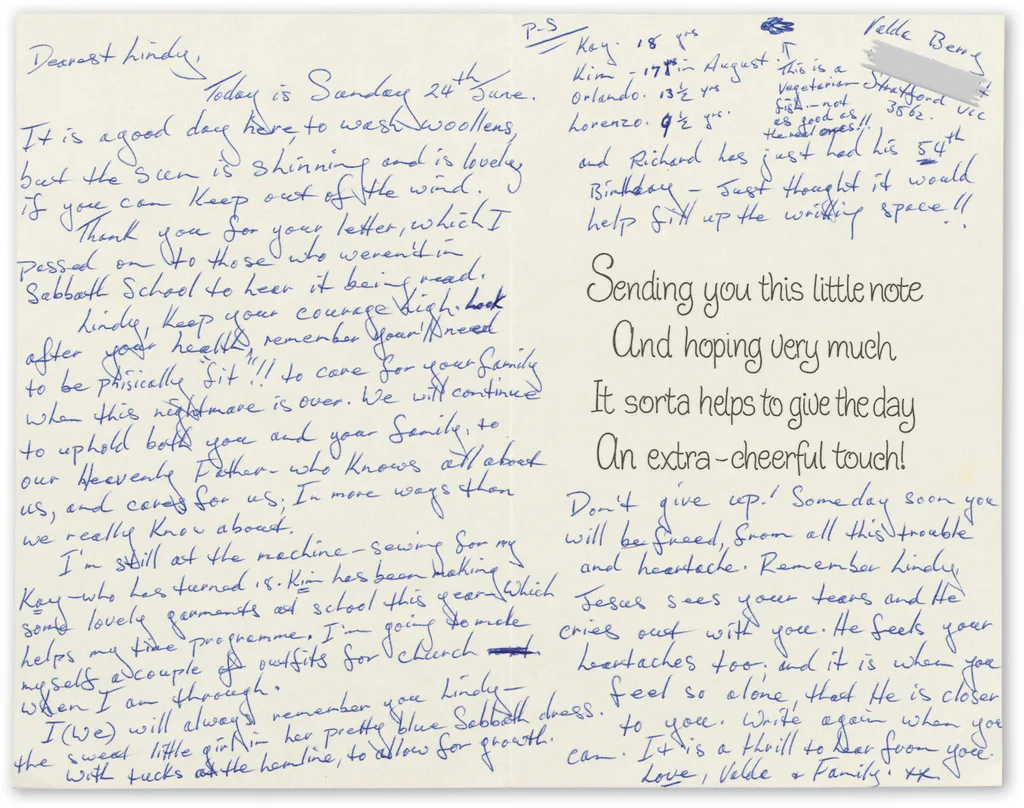 Dearest Lindy,
Today is Sunday 24th June.
It is a good day here, to wash woollens,
but the sun is shinning and is lovely
if you can Keep out of the wind.
Thank you for your letter, which I
passed on to those who weren't in
Sabbath School to hear it being read.
Lindy, Keep your courage high. Look
after your health, remember your'll need
to be phisically "fit"!! to care for your family
when this nightmare is over. We will continue
to uphold both you and your family, to
our Heavenly Father - who Knows all about
us, and cares for us; In more ways than
we really Know about.
I'm still at the machine - sewing for my
Kay - who has turned 18. Kim has been making
some lovely garments at school this year - Which
helps my time programme. I'm going to make
myself a couple of outfits for church
when I am through.
I (We) will always remember you Lindy -
the sweet little girl in her pretty blue Sabbath dress.
With tucks at the hemline, to allow for growth.
P-S
Kay. 18 yrs
Kim - 17 yrs in August.
Orlando. 13½ yrs
Lorenzo. 9½ yrs.
This is a
Vegetarian
fish - not
as good as
the real ones!!
Valda Berry
Stratford Vic
3862.
and Richard has just had his 54th
Birthday - Just thought it would
help fill up the writing space!!
Sending you this little note
And hoping very much
It sorta helps to give the day
An extra-cheerful touch!
Don't give up! Someday soon you
will be freed, from all this trouble
and heartache. Remember Lindy
Jesus sees your tears and He
cries out with you. He feels your
heartaches too; and it is when you
feel so alone, that He is closer
to you. Write again when you
can. It is a thrill to hear from you.
Love, Valda & Family. xx